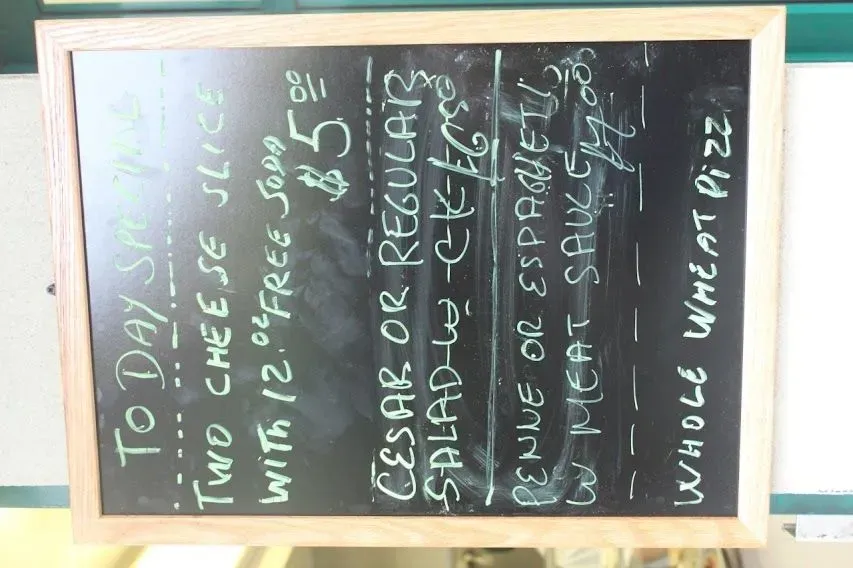 TODAY SPECIAL
TWO CHEESE SLICE
WITH 12.oz FREE SODA
$5.00
CESAR OR REGULAR
SALAD W CK
PENNE OR ESPAGHETI
W MEAT SAUCE $7.00
WHOLE WHEAT PIZZ